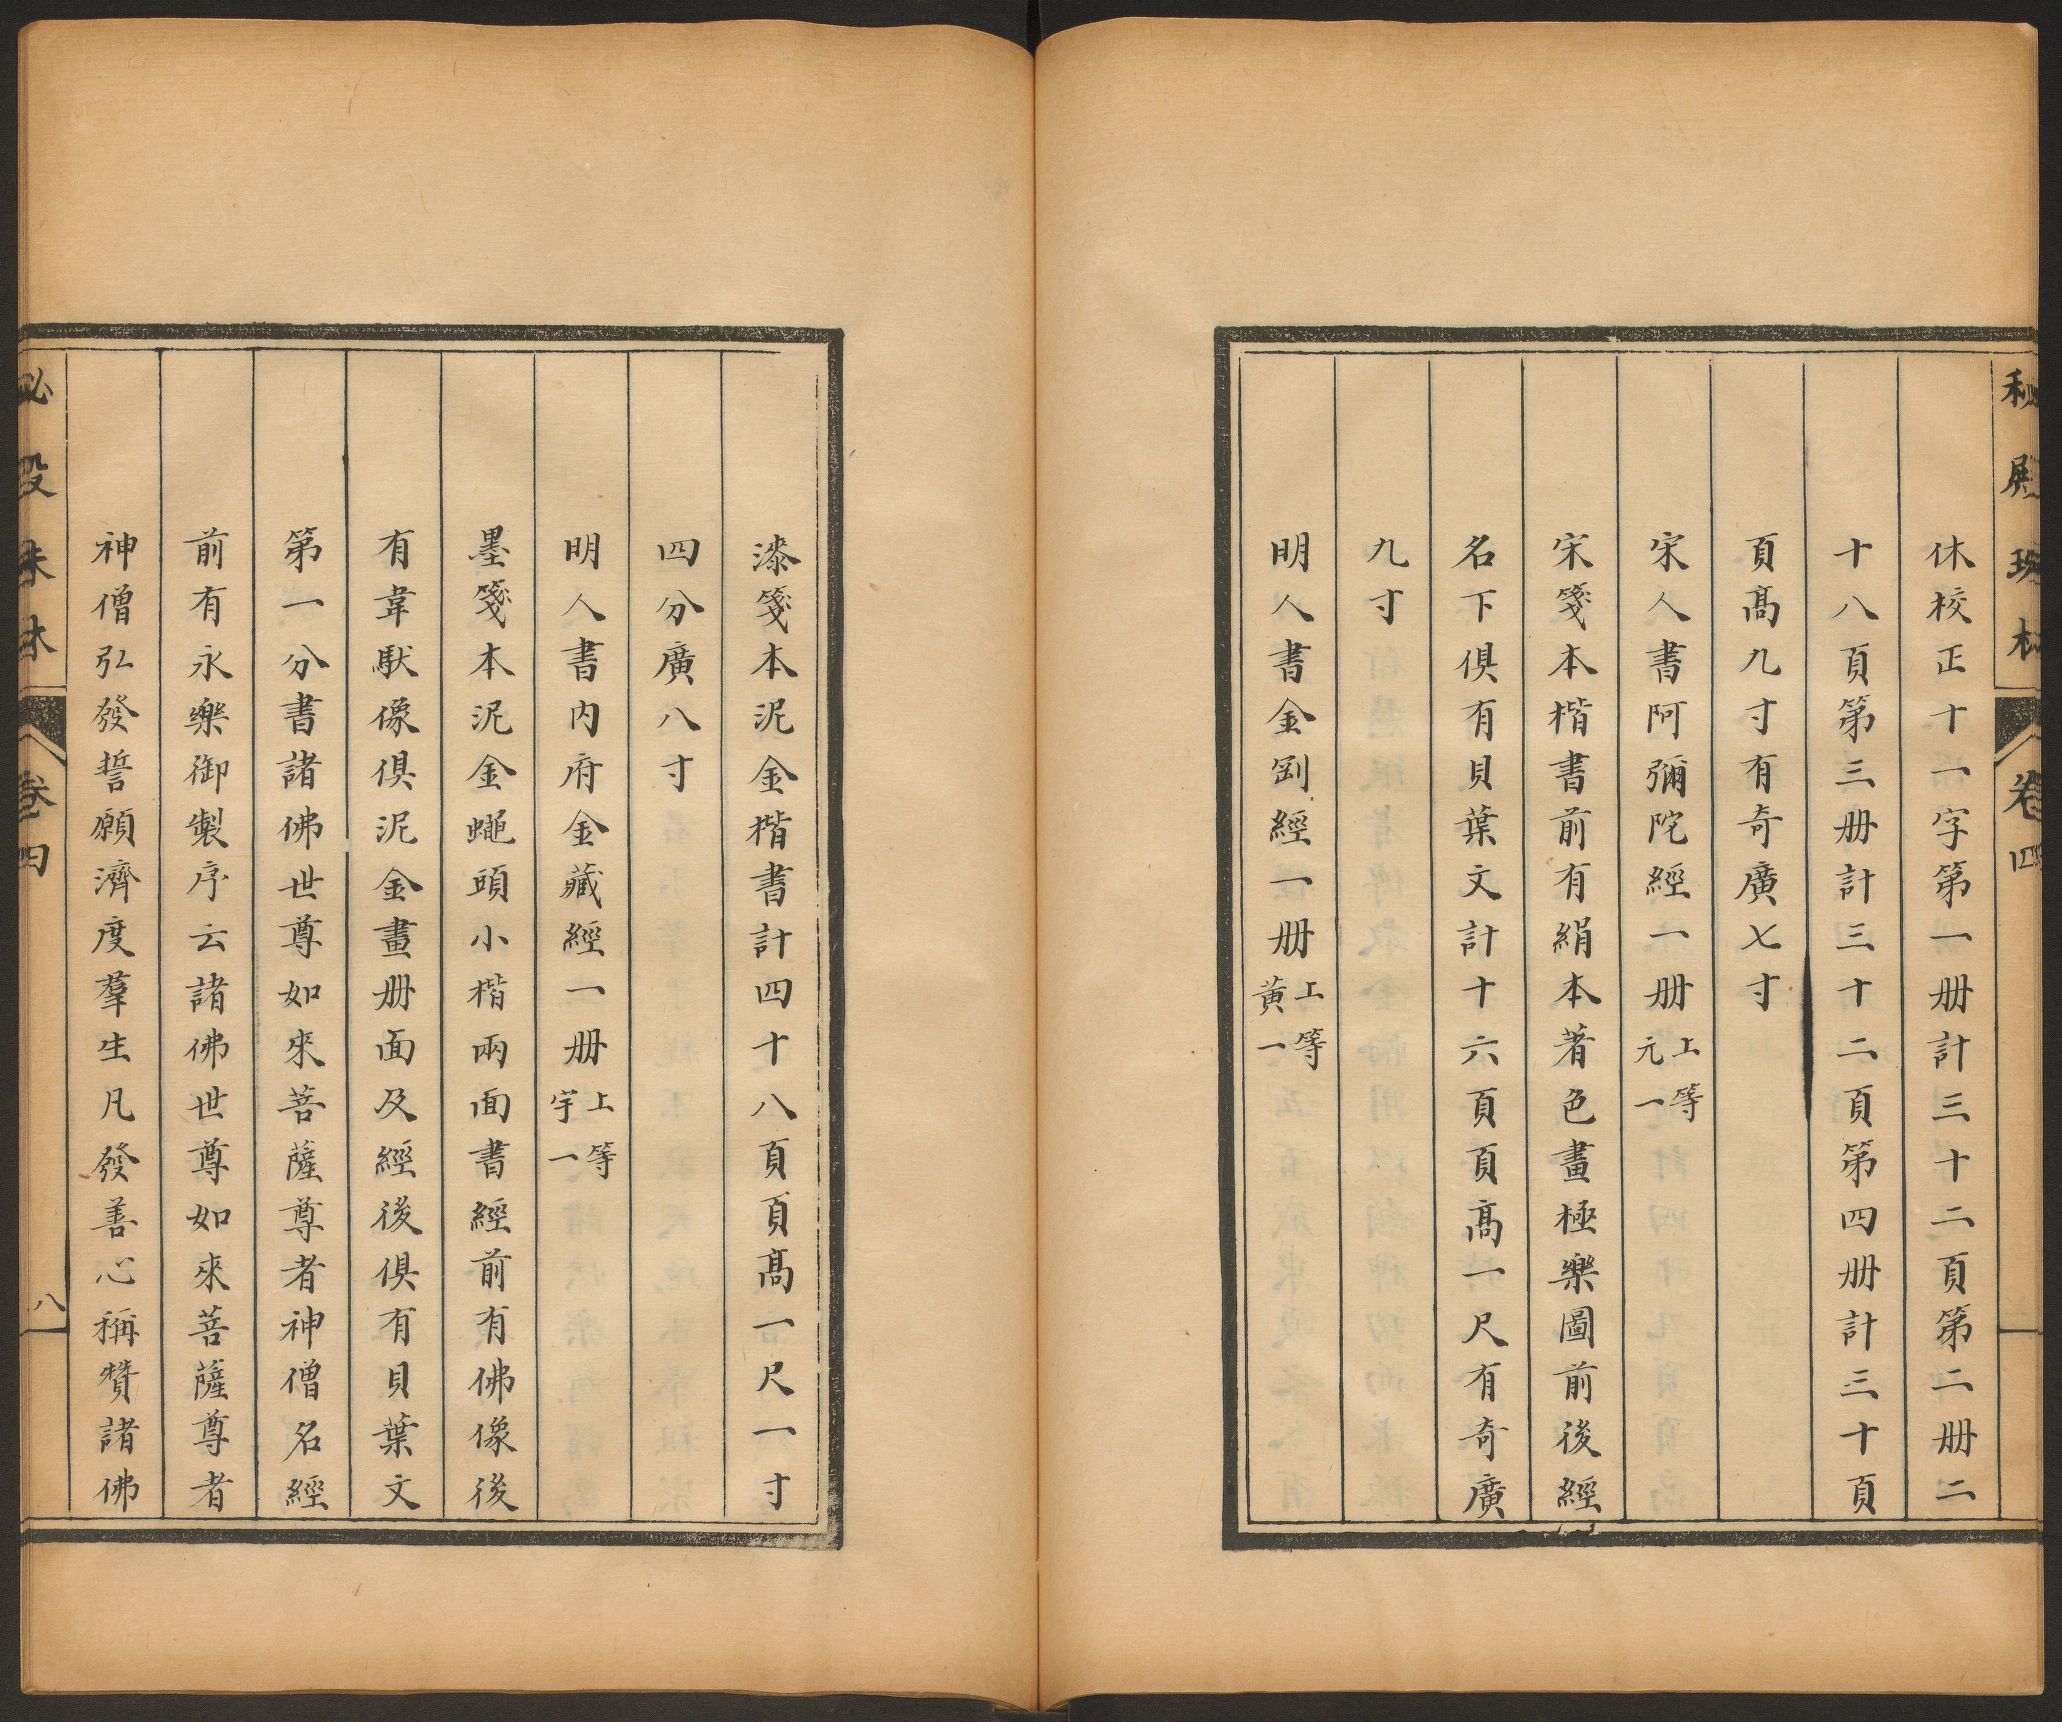 秘殿珠林 卷四
休校正十一字第一册計三十二頁第二册二
十八頁第三册計三十二頁第四册計三十頁
頁高九寸有奇廣七寸
宋人書阿彌陀經一册上等元一
宋箋本楷書前有絹本著色畫極樂圖前後經
名下俱有貝葉文計十六頁頁高一尺有奇廣
九寸
明人書金剛經一册上等黃一
漆箋本泥金楷書計四十八頁頁高一尺一寸
四分廣八寸
明人書内府金藏經一册上等宇一
墨箋本泥金蠅頭小楷兩面書經前有佛像後
有韋馱像俱泥金畫册面及經後俱有貝葉文
第一分書諸佛世尊如來菩薩尊者神僧名經
前有永樂御製序云諸佛世尊如來菩薩尊者
神僧弘發誓願濟度羣生凡發善心稱贊諸佛
秘殿珠林 卷四 八